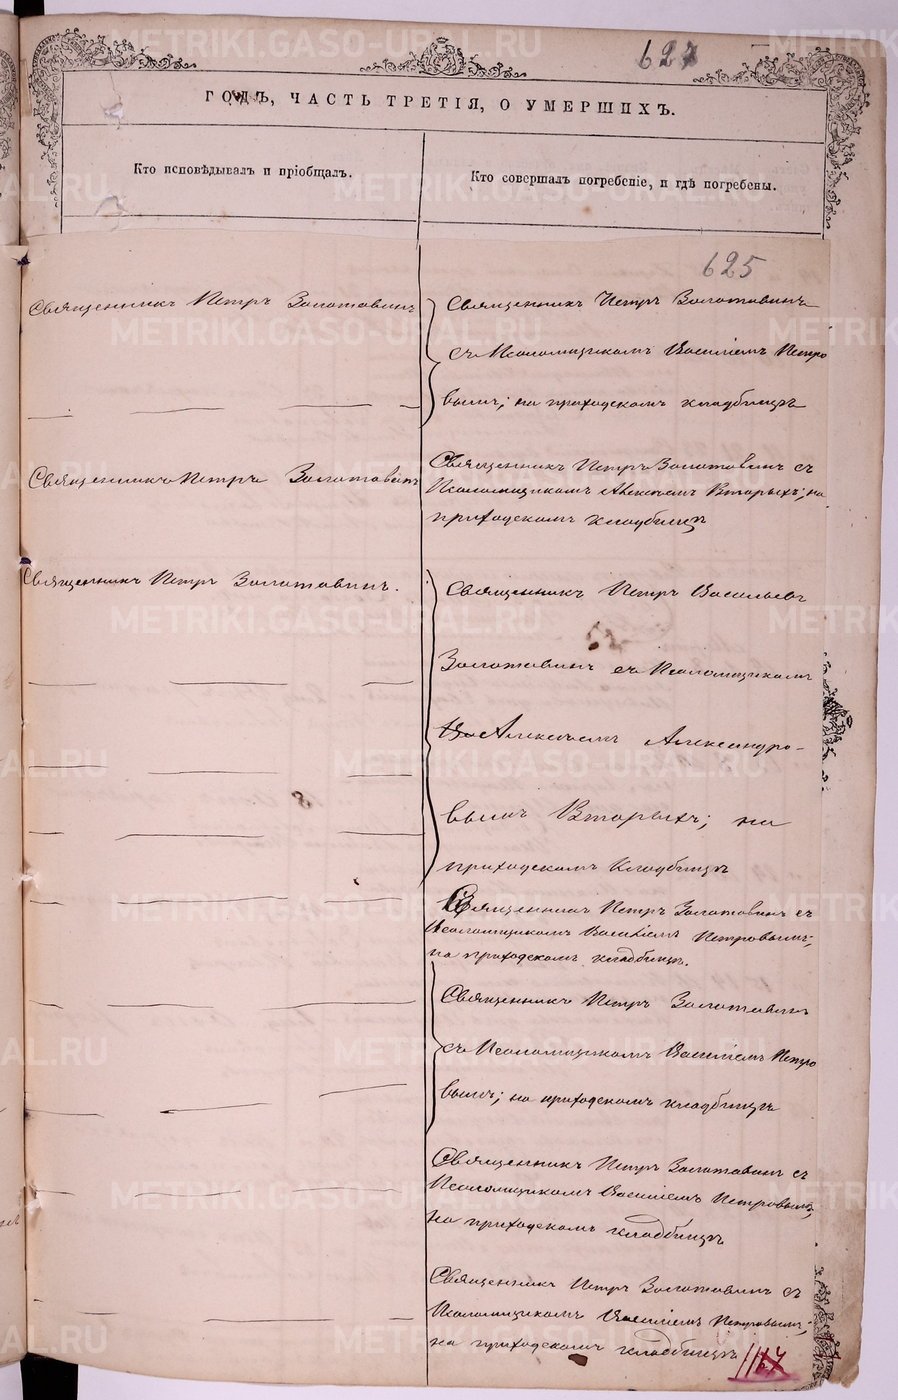 627
ГОДЪ, ЧАСТЬ ТРЕТІЯ, О УМЕРШИХЪ.
Кто исповѣдывалъ и пріобщалъ.
Кто совершалъ погребеніе, и гдѣ погребены.
625
Священникъ Петръ Золотавинъ
Священникъ Петръ Золотавинъ
съ Псаломщикомъ Василіемъ Петро
вымъ; на приходскомъ кладбищѣ
Священникъ Петръ Золотавинъ
Священникъ Петръ Золотавинъ съ
Псаломщикомъ Алексѣемъ Вторыхъ; на
приходскомъ кладбищѣ
Священникъ Петръ Золотавинъ.
Священникъ Петръ Васильевъ
Золотавинъ съ Псаломщикомъ
Ва Алексѣемъ Александро-
вымъ Вторыхъ; на
приходскомъ кладбищѣ
Священникъ Петръ Золотавинъ съ
Псаломщикомъ Василіемъ Петровымъ;
на приходскомъ кладбищѣ.
Священникъ Петръ Золотавинъ
съ Псаломщикомъ Василіемъ Петро
вымъ; на приходскомъ кладбищѣ
Священникъ Петръ Золотавинъ съ
Псаломщикомъ Василіемъ Петровымъ;
на приходскомъ кладбищѣ
Священникъ Петръ Золотавинъ съ
Псаломщикомъ Василіемъ Петровымъ;
на приходскомъ кладбищѣ
METRIKI.GASO-URAL.RU